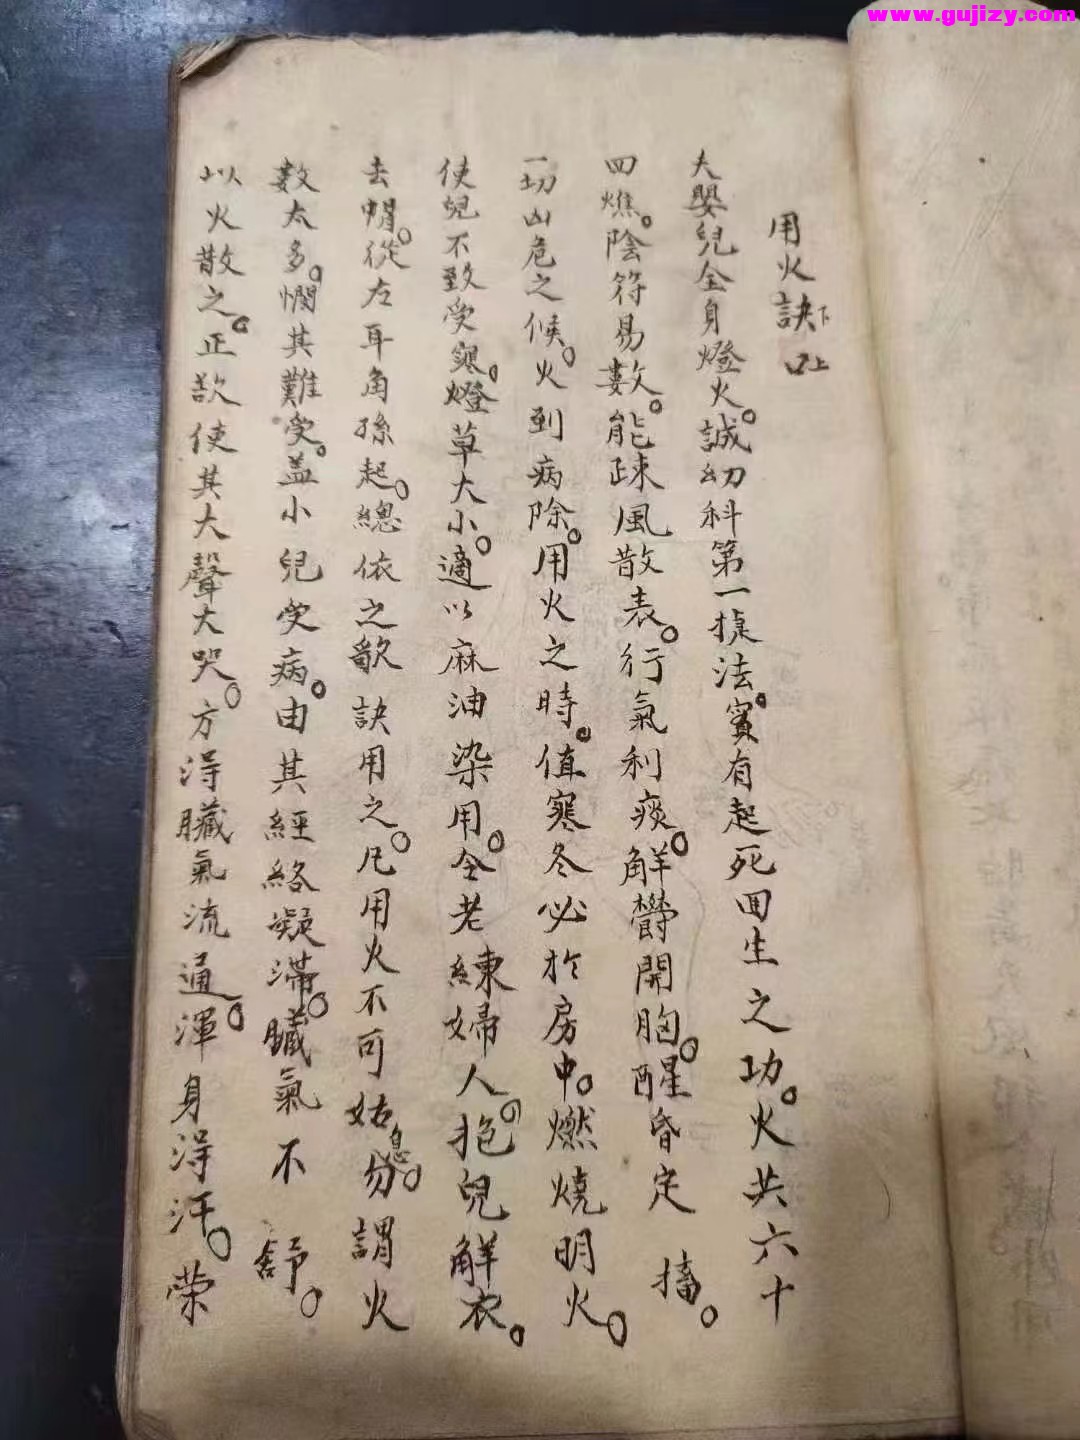 www.gujizy.com
用火訣下
口上
夫嬰兒全身燈火。誠幼科第一捷法。實有起死回生之功。火共六十
四燋。陰符易數。能疎風散表。行氣利痰。解欝開胸。醒昏定搐。
一切凶危之候。火到病除。用火之時。值寒冬必於房中。燃燒明火。
使兒不致受寒。燈草大小。適以麻油染用。令老練婦人。抱兒解衣。
去帽。從左耳角孫起。總依之歌訣用之。凡用火不可姑息。勿謂火
數太多。憫其難受。盖小兒受病。由其經絡凝滯。臟氣不舒。
以火散之。正欲使其大聲大哭。方得臟氣流通。渾身得汗。荣